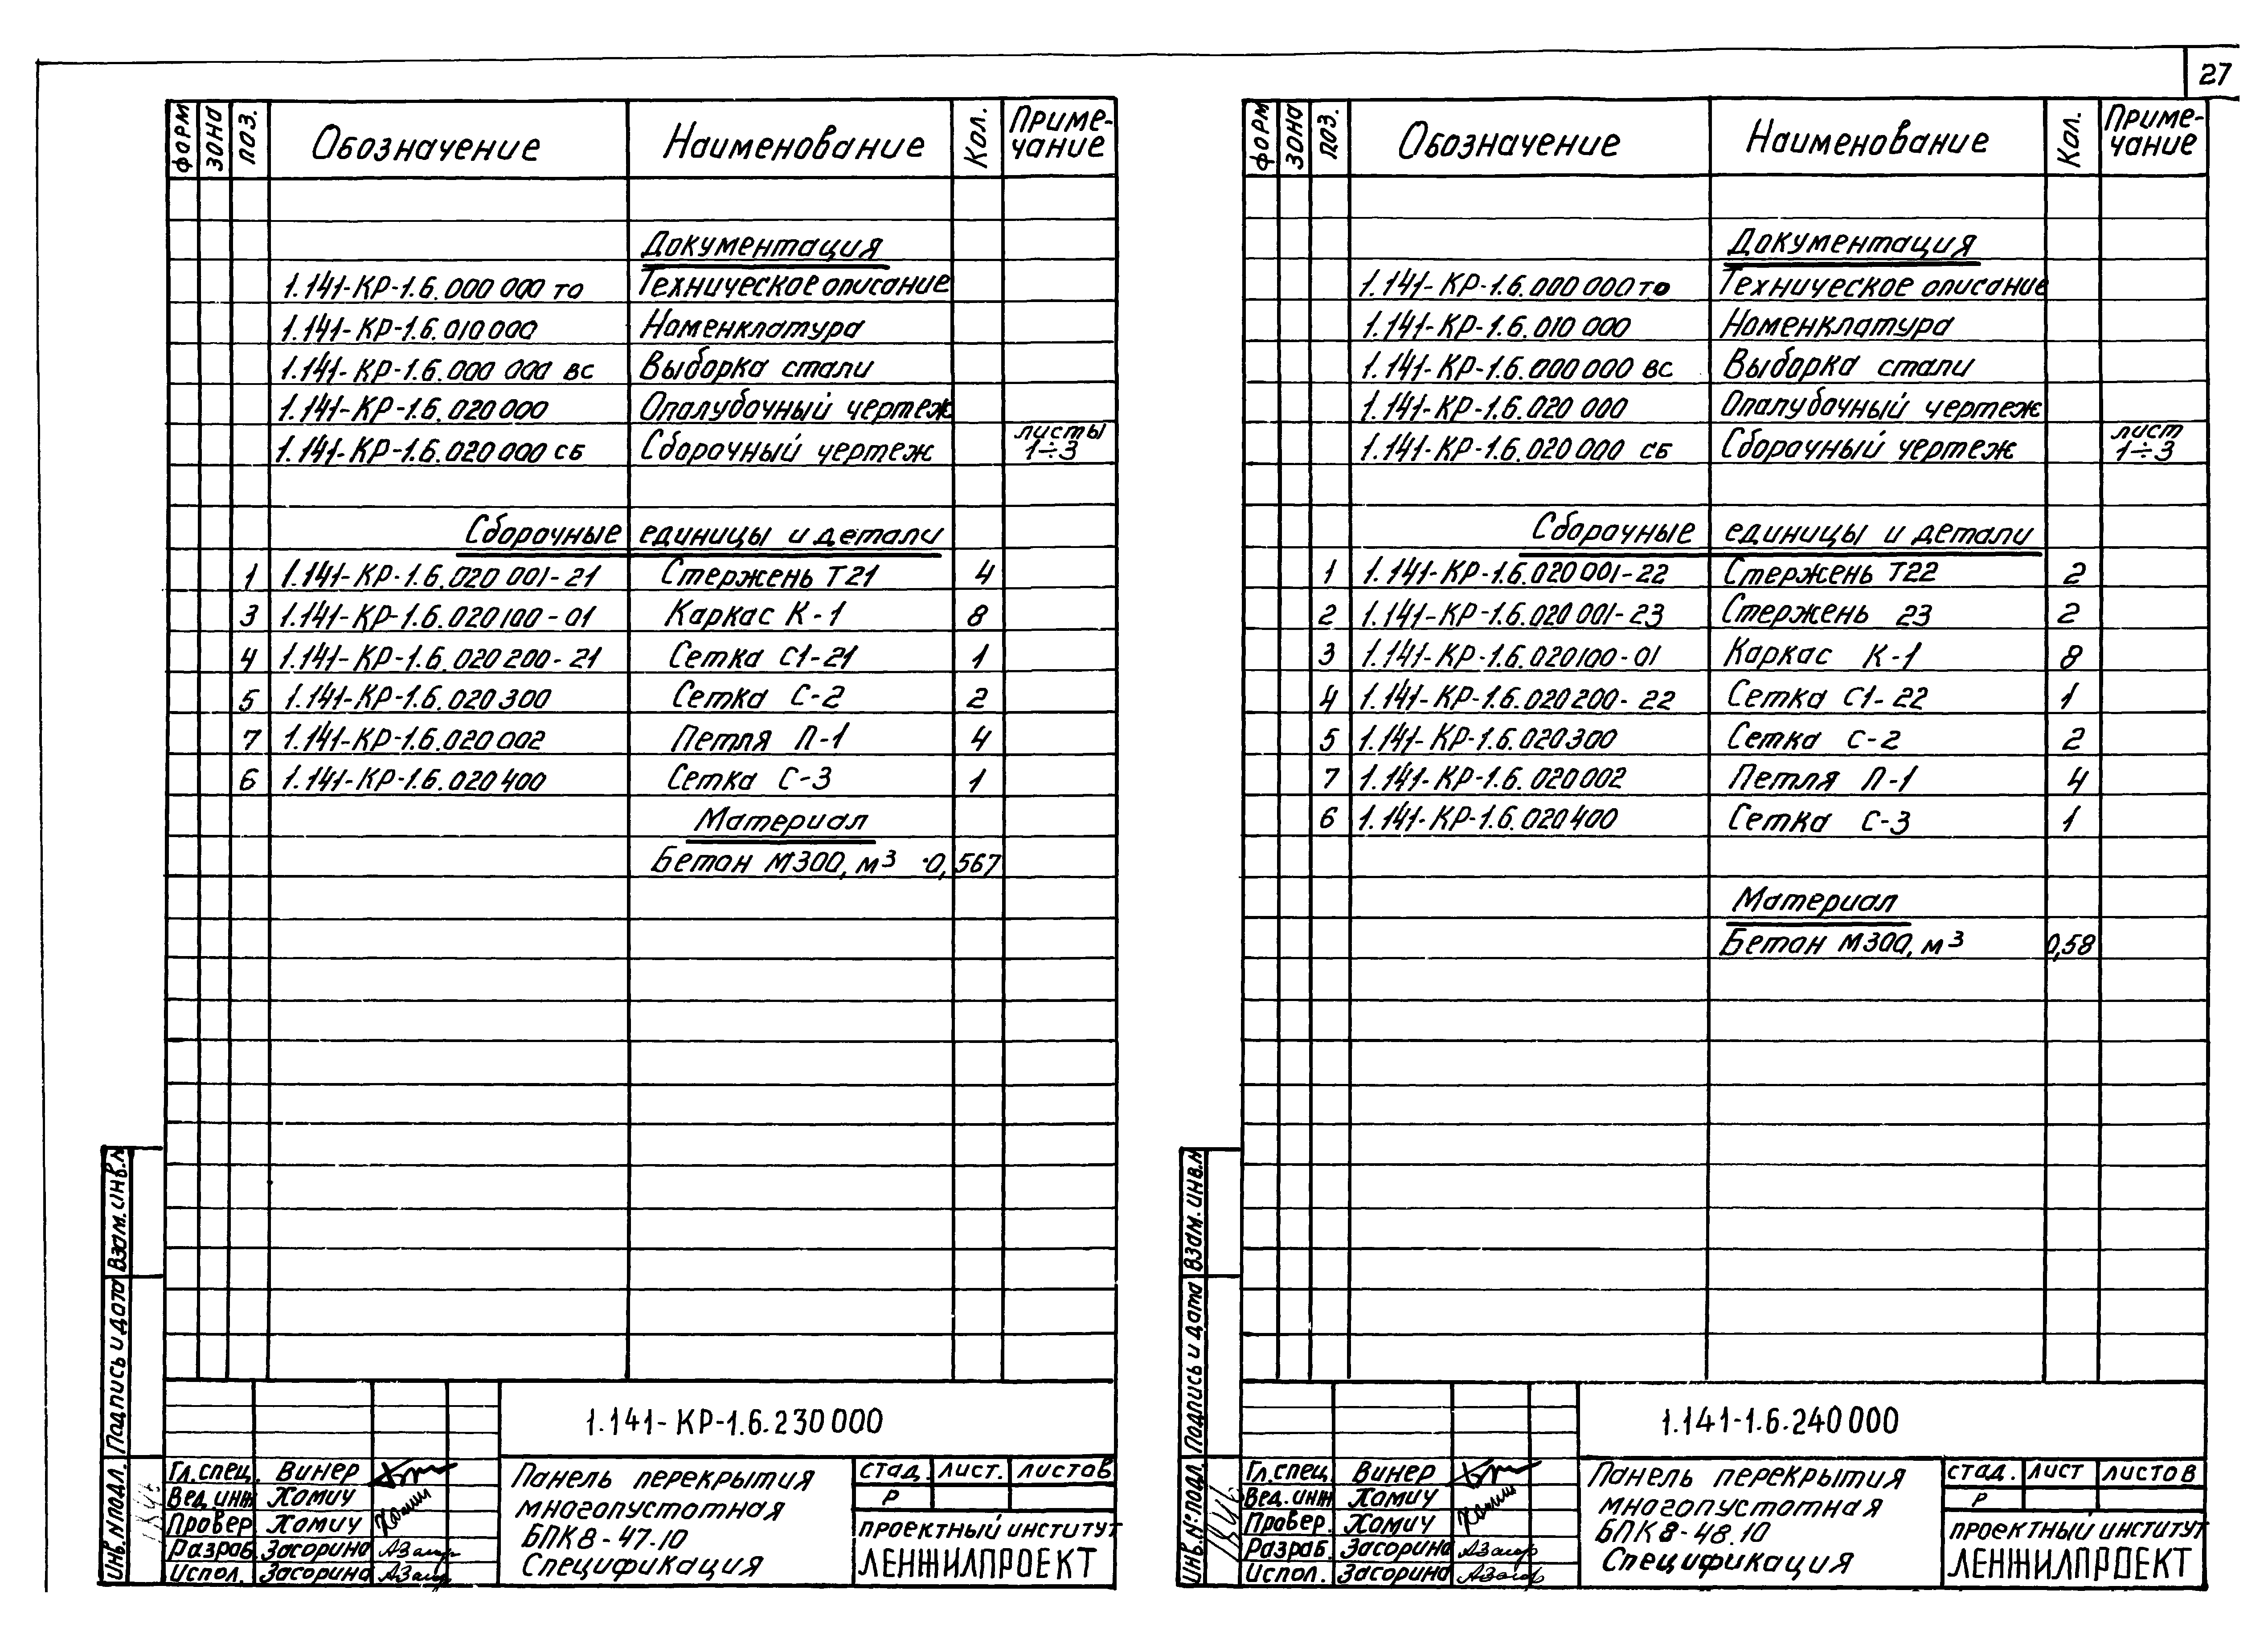 27
форм зона поз. Обозначение Наименование Кол. Приме-чание
Документация
1.141-КР-1.6.000 000 то Техническое описание
1.141-КР-1.6.010 000 Номенклатура
1.141-КР-1.6.000 000 вс Выборка стали
1.141-КР-1.6.020 000 Опалубочный чертеж
1.141-КР-1.6.020 000 сб Сборочный чертеж листы 1÷3
Сборочные единицы и детали
1 1.141-КР-1.6.020 001-21 Стержень Т21 4
3 1.141-КР-1.6.020100-01 Каркас К-1 8
4 1.141-КР-1.6.020 200-21 Сетка С1-21 1
5 1.141-КР-1.6.020 300 Сетка С-2 2
7 1.141-КР-1.6.020 002 Петля П-1 4
6 1.141-КР-1.6.020 400 Сетка С-3 1
Материал
Бетон М300, м³ 0,567
Взам. инв. №
Подпись и дата
Инв. № подл.
1.141-КР-1.6.230 000
Гл. спец. Винер
Вед. инж Хамич
Провер Хамич
Разраб. Засорина
Испол. Засорина
Панель перекрытия
многопустотная
БПК8-47.10
Спецификация
стад. лист. листов
Р
проектный институт
ЛЕНЖИЛПРОЕКТ
форм зона поз. Обозначение Наименование Кол. Приме-чание
Документация
1.141-КР-1.6.000 000 то Техническое описание
1.141-КР-1.6.010 000 Номенклатура
1.141-КР-1.6.000 000 вс Выборка стали
1.141-КР-1.6.020 000 Опалубочный чертеж
1.141-КР-1.6.020 000 сб Сборочный чертеж лист 1÷3
Сборочные единицы и детали
1 1.141-КР-1.6.020 001-22 Стержень Т22 2
2 1.141-КР-1.6.020 001-23 Стержень 23 2
3 1.141-КР-1.6.020100-01 Каркас К-1 8
4 1.141-КР-1.6.020 200-22 Сетка С1-22 1
5 1.141-КР-1.6.020300 Сетка С-2 2
7 1.141-КР-1.6.020002 Петля П-1 4
6 1.141-КР-1.6.020400 Сетка С-3 1
Материал
Бетон М300, м³ 0,58
Взам. инв. №
Подпись и дата
Инв. № подл.
1.141-1.6.240 000
Гл. спец Винер
Вед. инж Хамич
Провер. Хамич
Разраб. Засорина
Испол. Засорина
Панель перекрытия
многопустотная
БПК8-48.10
Спецификация
стад. лист листов
Р
проектный институт
ЛЕНЖИЛПРОЕКТ